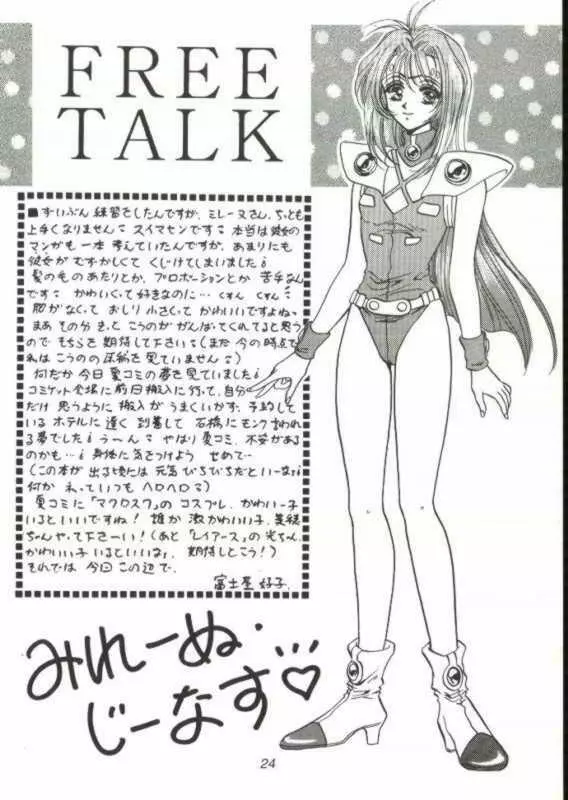 FREE
TALK
■ずいぶん 練習をしたんですが、ミレーヌさん、ちっとも
上手くなりません。スイマセンです。本当は彼女の
マンがも 一本 考えていたんですが、あまりにも
彼女が むずかしくて くじけてしまいました
髪の毛のあたりとか、プロポーションとか 苦手なん
です。かわいくって好きなのに… くすん くすん
胸がなくって おしり 小さくって かわいいですよねっ
まあ その分 きっと こうのが がんばってくれてると思う
ので もちらを 期待して下さい。(まだ 今の時点で
私は こうの の 原稿を 見ていません。)
何だか 今日 夏コミの夢を見ていました
コミケット会場に 前日搬入に行って、自分
だけ 思うように 搬入が うまくいかず、予約して
いる ホテルに 遅く 到着して 石橋に モンク言われ
る夢でした う〜ん やはり 夏コミ、不安がある
のかも…身体に 気をつけよう せめて…
(この本が 出る頃には 元気 ぴちぴちだと いーな
何か 私っていつも ヘロヘロ)
夏コミに「マクロス7」の コスプレ、かわいー子
いるといいですね! 誰か 激かわいい子、美穂
ちゃん やって下さーい!(あと「レイアース」の光ちゃん
かわいい子 いるといいな、期待しとこう!)
それでは 今回 この辺で、
富士屋 好子
みれーぬ・
じーなす♡
24